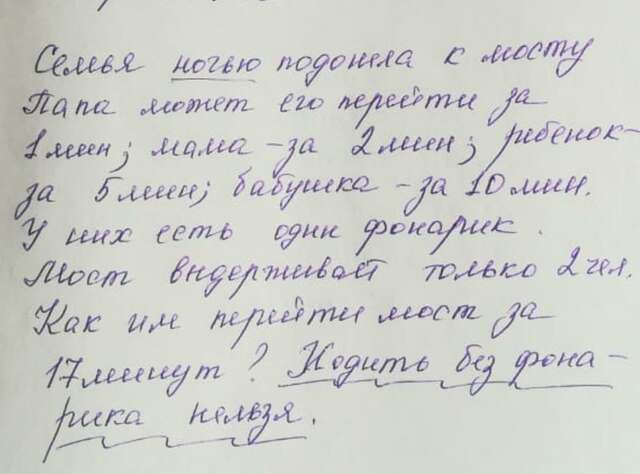 Семья ночью подошла к мосту
Папа может его перейти за
1 мин; мама - за 2 мин; ребенок -
за 5 мин; бабушка - за 10 мин.
У них есть один фонарик.
Мост выдерживает только 2 чел.
Как им перейти мост за
17 минут? Ходить без фона-
рика нельзя.